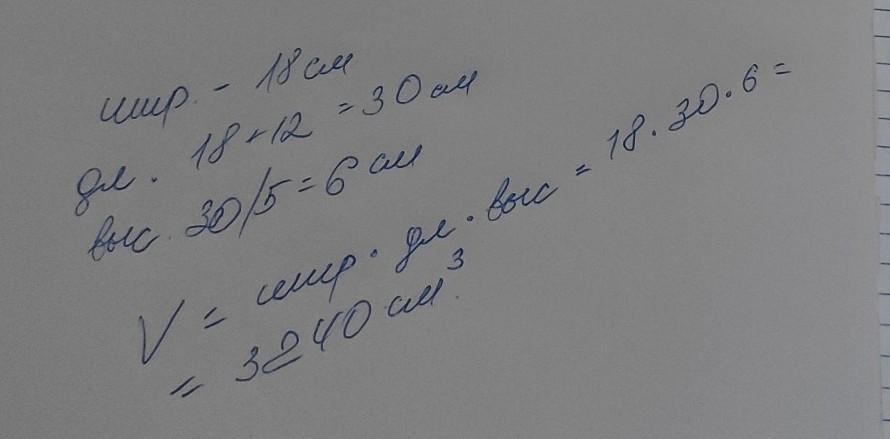 шир. - 18 см
дл. 18+12 = 30 см
выс. 30/5 = 6 см
V = шир. дл. выс = 18. 30. 6 =
= 3240 см³.